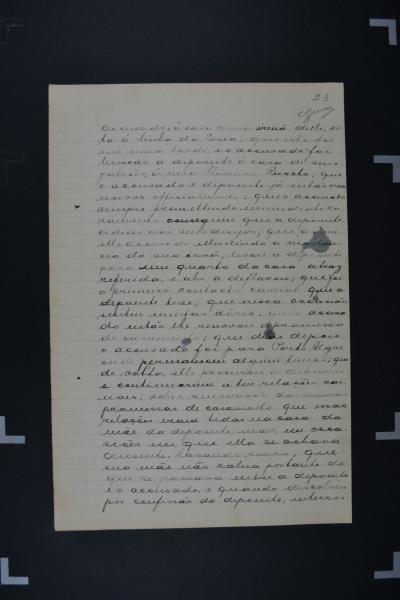 23
accusado á casa duma irmã delle, si-
ta á linha da Cerca; que isto foi
em uma tarde, e o accusado foi
buscar a depoente á casa de seus
patrões, á rua Floriano Peixoto; que
o accusado e depoente já então eram
noivos officialmente; que o accusado
sempre promettendo-lhe casa-
mento conseguiu que a depoente
cedesse aos seus desejos; que a
elle accusado illudindo a vigilan-
cia da sua irmã, levou a depoente
para um quarto da casa atraz
referida, e ahi a deflorou; que foi
o primeiro contacto carnal que a
depoente teve; que nessa occasião
sentiu muitas dôres; que o accusa-
do então lhe renovou a promessa
de casamento; que dias depois
o accusado foi para Porto Alegre
onde permaneceu algum tempo; que
de volta, elle procurou a depoente
e continuaram a ter relações car-
naes, sob renovação das mesmas
promessas de casamento; que essas
relações eram tidas na casa da
mãe da depoente, em occa-
siões em que ella se achava
ausente, lavando roupa; que
sua mãe não sabia portanto do
que se passava entre a depoente
e o accusado, e quando descobriu
por confissão da depoente, interro-